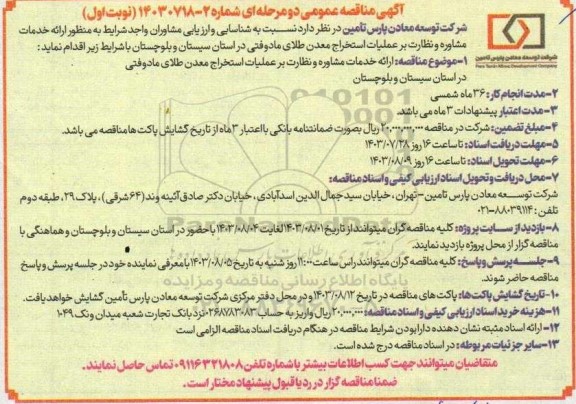 آگهی مناقصه عمومی دو مرحله ای شماره ۲-۱۴۰۳۰۷۱۸ (نوبت اول)
شرکت توسعه معادن پارس تأمین
Pars Tamin Mines Development Company
شرکت توسعه معادن پارس تأمین در نظر دارد نسبت به شناسایی و ارزیابی مشاوران واجد شرایط به منظور ارائه خدمات
مشاوره و نظارت بر عملیات استخراج معدن طلای مادوفتی در استان سیستان و بلوچستان با شرایط زیر اقدام نماید:
۱-موضوع مناقصه: ارائه خدمات مشاوره و نظارت بر عملیات استخراج معدن طلای مادوفتی
در استان سیستان و بلوچستان
۲-مدت انجام کار: ۳۶ ماه شمسی
۳-مدت اعتبار پیشنهادات ۳ ماه می باشد.
۴-مبلغ تضمین: شرکت در مناقصه ۲۰,۰۰۰,۰۰۰,۰۰۰ ریال بصورت ضمانتنامه بانکی با اعتبار ۳ ماه از تاریخ گشایش پاکت ها مناقصه می باشد.
۵-مهلت دریافت اسناد: تا ساعت ۱۶ روز ۱۴۰۳/۰۷/۲۸
۶-مهلت تحویل اسناد: تا ساعت ۱۶ روز ۱۴۰۳/۰۸/۰۹
۷-محل دریافت و تحویل اسناد ارزیابی کیفی و اسناد مناقصه:
شرکت توسعه معادن پارس تامین-تهران، خیابان سید جمال الدین اسدآبادی، خیابان دکتر صادق آئینه وند (۶۴ شرقی)، پلاک ۲۹، طبقه دوم
تلفن: ۸۸۰۳۹۱۱۴-۰۲۱
۸-بازدید از سایت پروژه: کلیه مناقصه گران میتوانند از تاریخ ۱۴۰۳/۰۸/۰۱ لغایت ۱۴۰۳/۰۸/۰۴ با حضور در استان سیستان و بلوچستان و هماهنگی با
مناقصه گزار از محل پروژه بازدید نمایند.
۹-جلسه پرسش و پاسخ: کلیه مناقصه گران میتوانند راس ساعت ۱۱:۰۰ روز شنبه به تاریخ ۱۴۰۳/۰۸/۰۵ با معرفی نماینده خود در جلسه پرسش و پاسخ
مناقصه حاضر شوند.
۱۰-تاریخ گشایش پاکت ها: پاکت های مناقصه در تاریخ ۱۴۰۳/۰۸/۱۲ و در محل دفتر مرکزی شرکت توسعه معادن پارس تأمین گشایش خواهد یافت.
۱۱-هزینه خرید اسناد ارزیابی کیفی و اسناد مناقصه: ۲۰,۰۰۰,۰۰۰ ریال واریز به حساب ۰۲۶۸۷۸۳۰۸۳ نزد بانک تجارت شعبه میدان ونک ۱۰۴۹
۱۲-ارائه اسناد مثبته نشان دهنده دارا بودن شرایط مناقصه در هنگام دریافت اسناد مناقصه الزامی است
۱۳-سایر جزئیات مربوطه: در اسناد مناقصه درج شده است.
متقاضیان میتوانند جهت کسب اطلاعات بیشتر با شماره تلفن ۰۹۱۱۶۳۲۱۸۰۸ تماس حاصل نمایند.
ضمنا مناقصه گزار در رد یا قبول پیشنهاد مختار است.